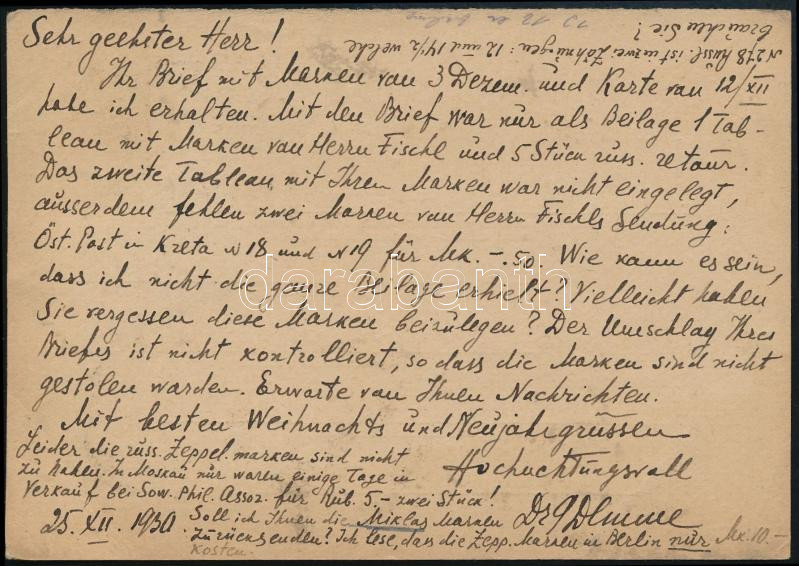 Sehr geehrter Herr!
N 278 Russl. ist in zwei Zähnungen: 12 und 14 1/2 welche
brauchen Sie?
Ihr Brief mit Marken van 3 Dezem. und Karte van 12/XII
habe ich erhalten. Mit den Brief war nur als Beilage 1 Tab-
leau mit Marken van Herrn Fischl und 5 Stück russ. retour.
Das zweite Tableau, mit Ihren Marken war nicht eingelegt,
ausserdem fehlen zwei Marken van Herrn Fischls Sendung:
Öst. Post in Kreta N 18 und N 19 für Mk. -.50. Wie kann es sein,
dass ich nicht die ganze Beilage erhielt? Vielleicht haben
Sie vergessen diese Marken beizulegen? Der Umschlag Ihres
Briefes ist nicht kontrolliert, so dass die Marken sind nicht
gestolen warden. Erwarte van Ihnen Nachrichten.
Mit besten Weihnachts und Neujahrgrüssen
Hochachtungsvall
Leider die russ. Zeppel. marken sind nicht
zu haben. In Moskau nur waren einige Tage in
Verkauf bei Sow. Phil. Assoz. für Rub. 5.- zwei Stück!
25. XII. 1930
Soll ich Ihnen die Miklas Marken
zurücksenden? Ich lese, dass die Zepp. Marken in Berlin nur Mk. 10.-
kosten.
darabanth